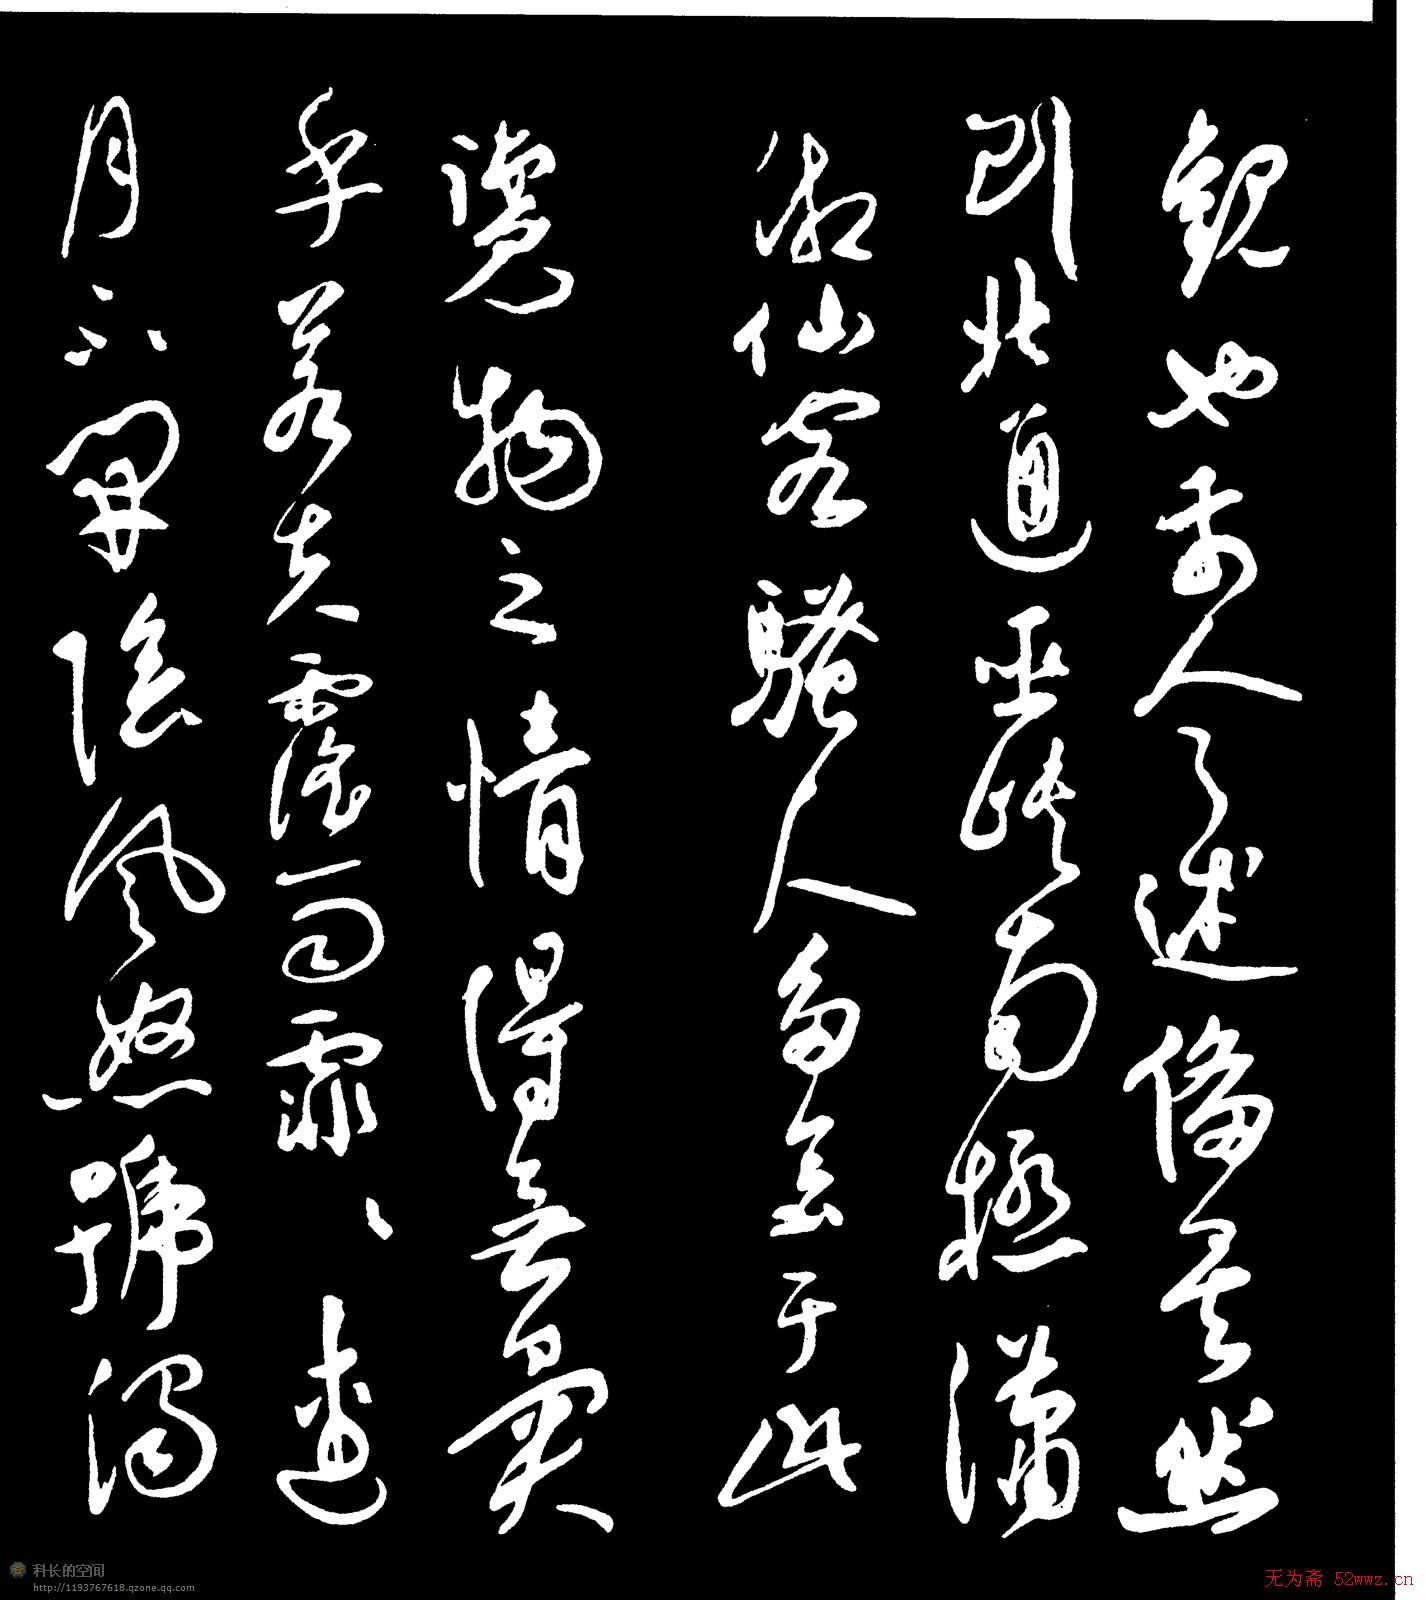 觀也前人之述備矣然
則北通巫峽南極瀟
湘仙客騷人多會于此
覽物之情得無異
乎若夫霪雨霏、連
月不開陰風怒號濁
科长的空间
http://1193767618.qzone.qq.com
无为斋 52wwz.cn